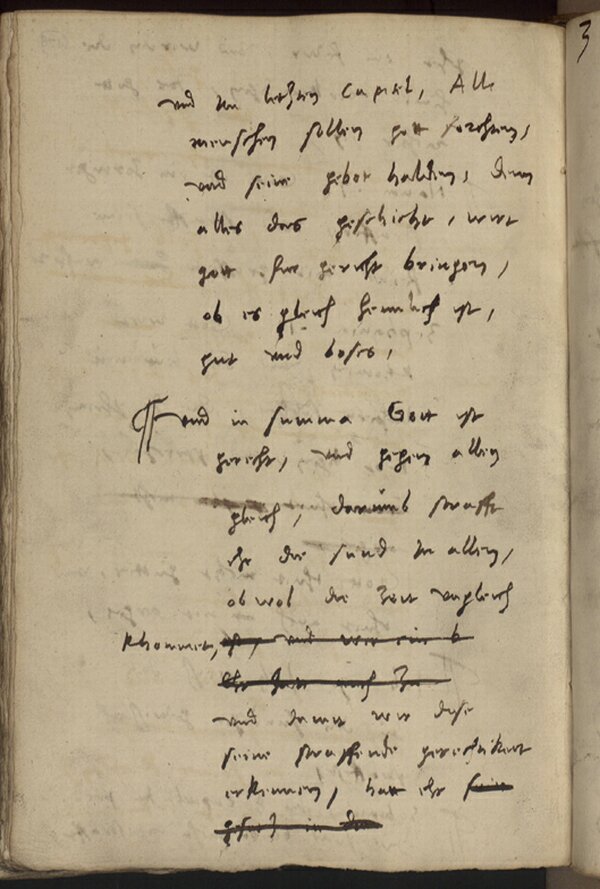 und im letzten Capitel, Alle
menschen sollen gott forchten,
und seine gebot halden, denn
alles das geschicht, wirt
gott fur gericht bringen,
ob es gleich heimlich ist,
gut und boses,
und in summa Gott ist
gerecht, und gegen allen
gleich, darumb strafft
ehr die sund in allen,
ob wol die Zeit ungleich
khommet, ist, und wer ein
ehr hatt auch
und damit wir dise
seine straffende gerechtikeit
erkennen, hatt ehr sein
gesetz in
3